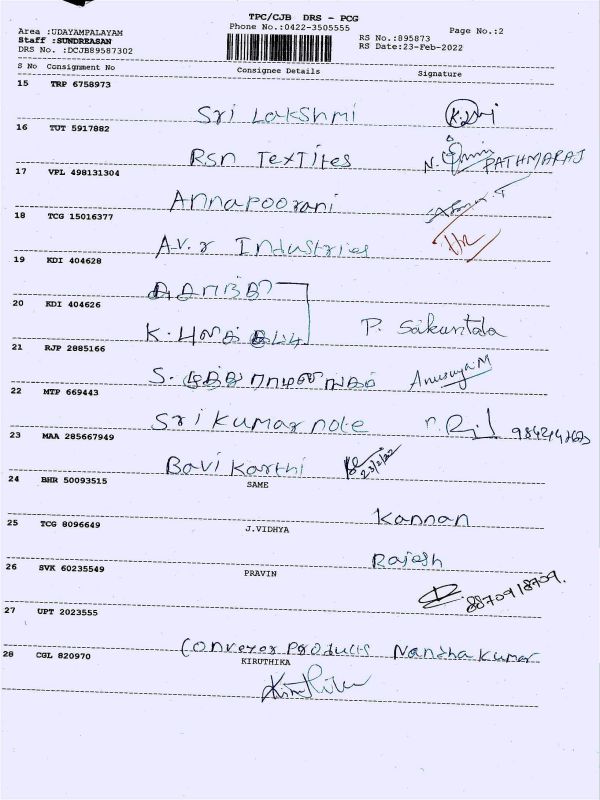 TPC/CJB DRS - PCG
Area :UDAYAMPALAYAM Phone No.:0422-3505555 Page No.:2
Staff :SUNDREASAN RS No.:895873
DRS No. :DCJB89587302 RS Date:23-Feb-2022
S No Consignment No Consignee Details Signature
15 TRP 6758973
Sri Lakshmi
16 TUT 5917882
Rsn Textiles N. PATHMARAJ
17 VPL 498131304
Annapoorani
18 TCG 15016377
A.v.r Industries
19 KDI 404628
20 KDI 404626
K. P. Sakuntala
21 RJP 2885166
S. Anusuya M
22 MTP 669443
Sri kumar note
23 MAA 285667949
Bavi Karthi 23/2/22
24 BHR 50093515 SAME
Kannan
25 TCG 8096649 J.VIDHYA
Rajesh
26 SVK 60235549 PRAVIN
8870918709.
27 UPT 2023555
Conveyer Products Nandhakumar
28 CGL 820970 KIRUTHIKA